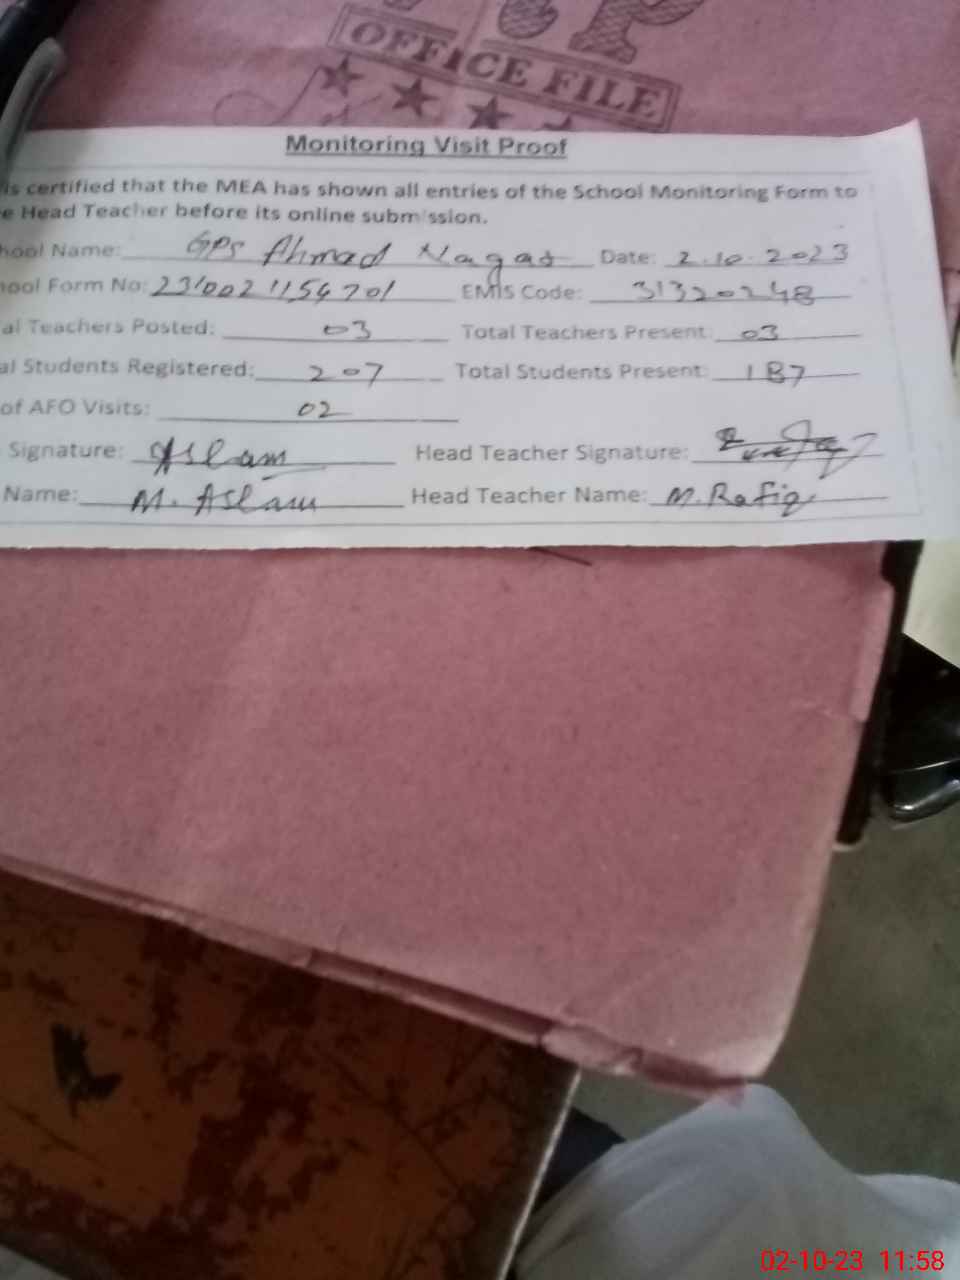 OFFICE FILE
Monitoring Visit Proof
is certified that the MEA has shown all entries of the School Monitoring Form to
e Head Teacher before its online submission.
hool Name: GPS Ahmad Nagar Date: 2.10.2023
hool Form No: 2310021154701 EMIS Code: 31320248
al Teachers Posted: 03 Total Teachers Present: 03
al Students Registered: 207 Total Students Present: 187
of AFO Visits: 02
Signature: Aslam Head Teacher Signature:
Name: M. Aslam Head Teacher Name: M. Rafiq
02-10-23 11:58